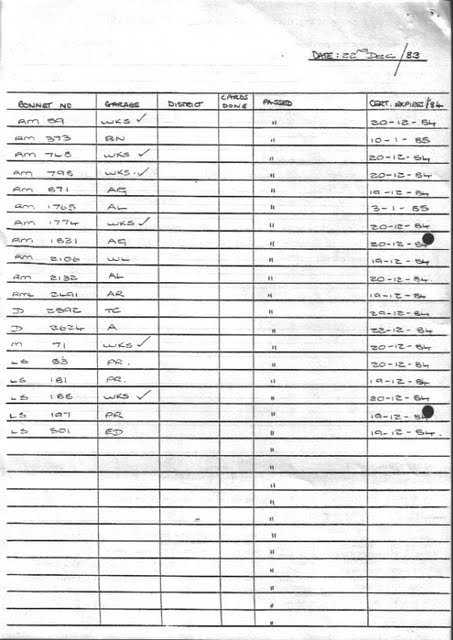 DATE: 22ND DEC / 83
BONNET NO GARAGE DISTRICT CARDS DONE PASSED CERT. EXPIRES/84
RM 89 WKS ✓ " 20-12-84
RM 373 BN 10-1-85
RM 745 WKS ✓ " 20-12-84
RM 798 WKS ✓ " 20-12-84
RM 871 AG " 19-12-84
RM 1765 AL " 3-1-85
RM 1774 WKS ✓ " 20-12-84
RM 1831 AG " 20-12-84
RM 2106 WL " 19-12-84
RM 2132 AL " 20-12-84.
RML 2491 AR " 19-12-84
D 2592 TC " 29-12-84
D 2624 A " 22-12-84
M 71 WKS ✓ " 20-12-84
LS 83 PR. " 20-12-84
LS 181 PR. " 19-12-84
LS 188 WKS ✓ " 20-12-84
LS 197 PR " 19-12-84
LS 301 ED " 19-12-84.
"
"
"
"
"
"
"
"
"
"